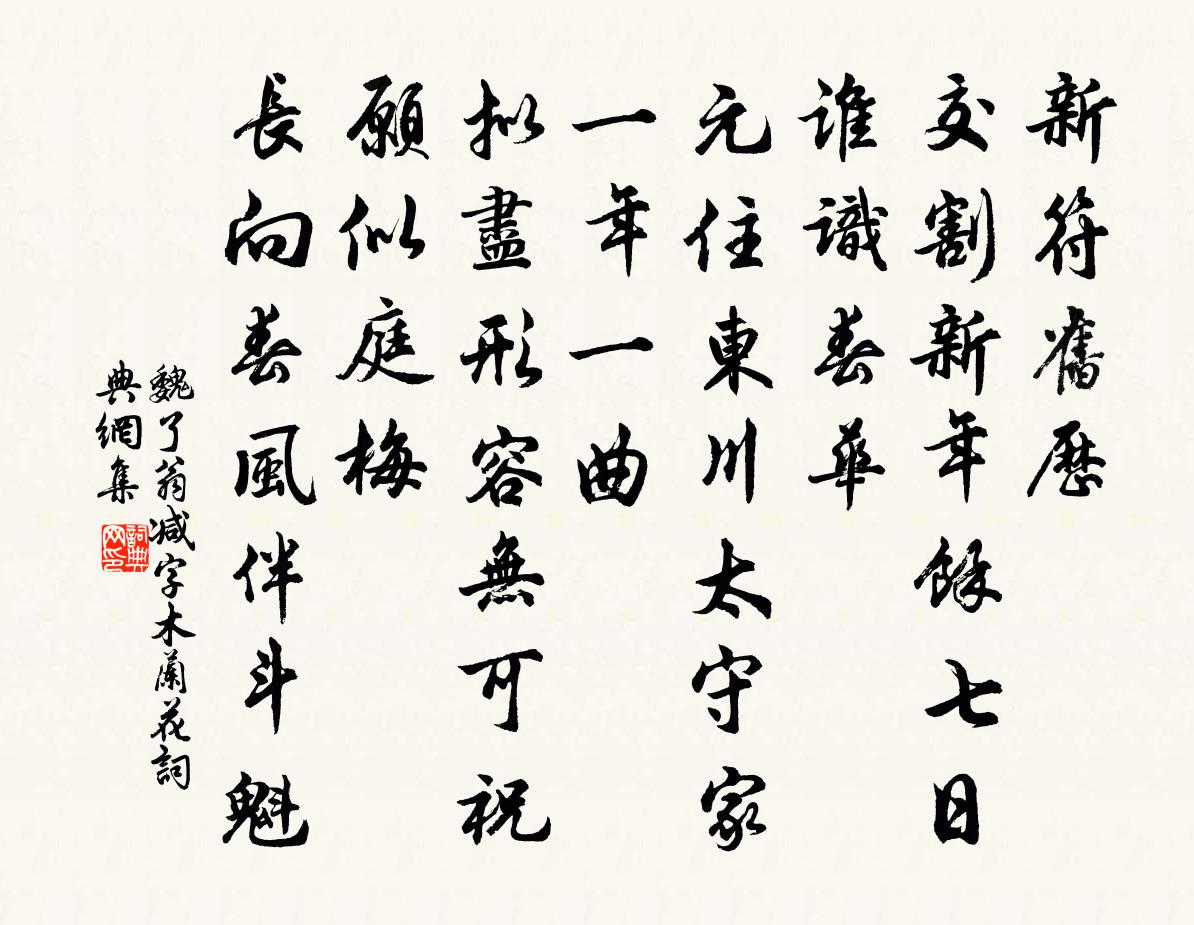 新符舊歷
交割新年餘七日
誰識春華
元住東川太守家
一年一曲
拟盡形容無可祝
願似庭梅
長向春風伴斗魁
魏了翁减字木蘭花詞
典網集
詞典网印